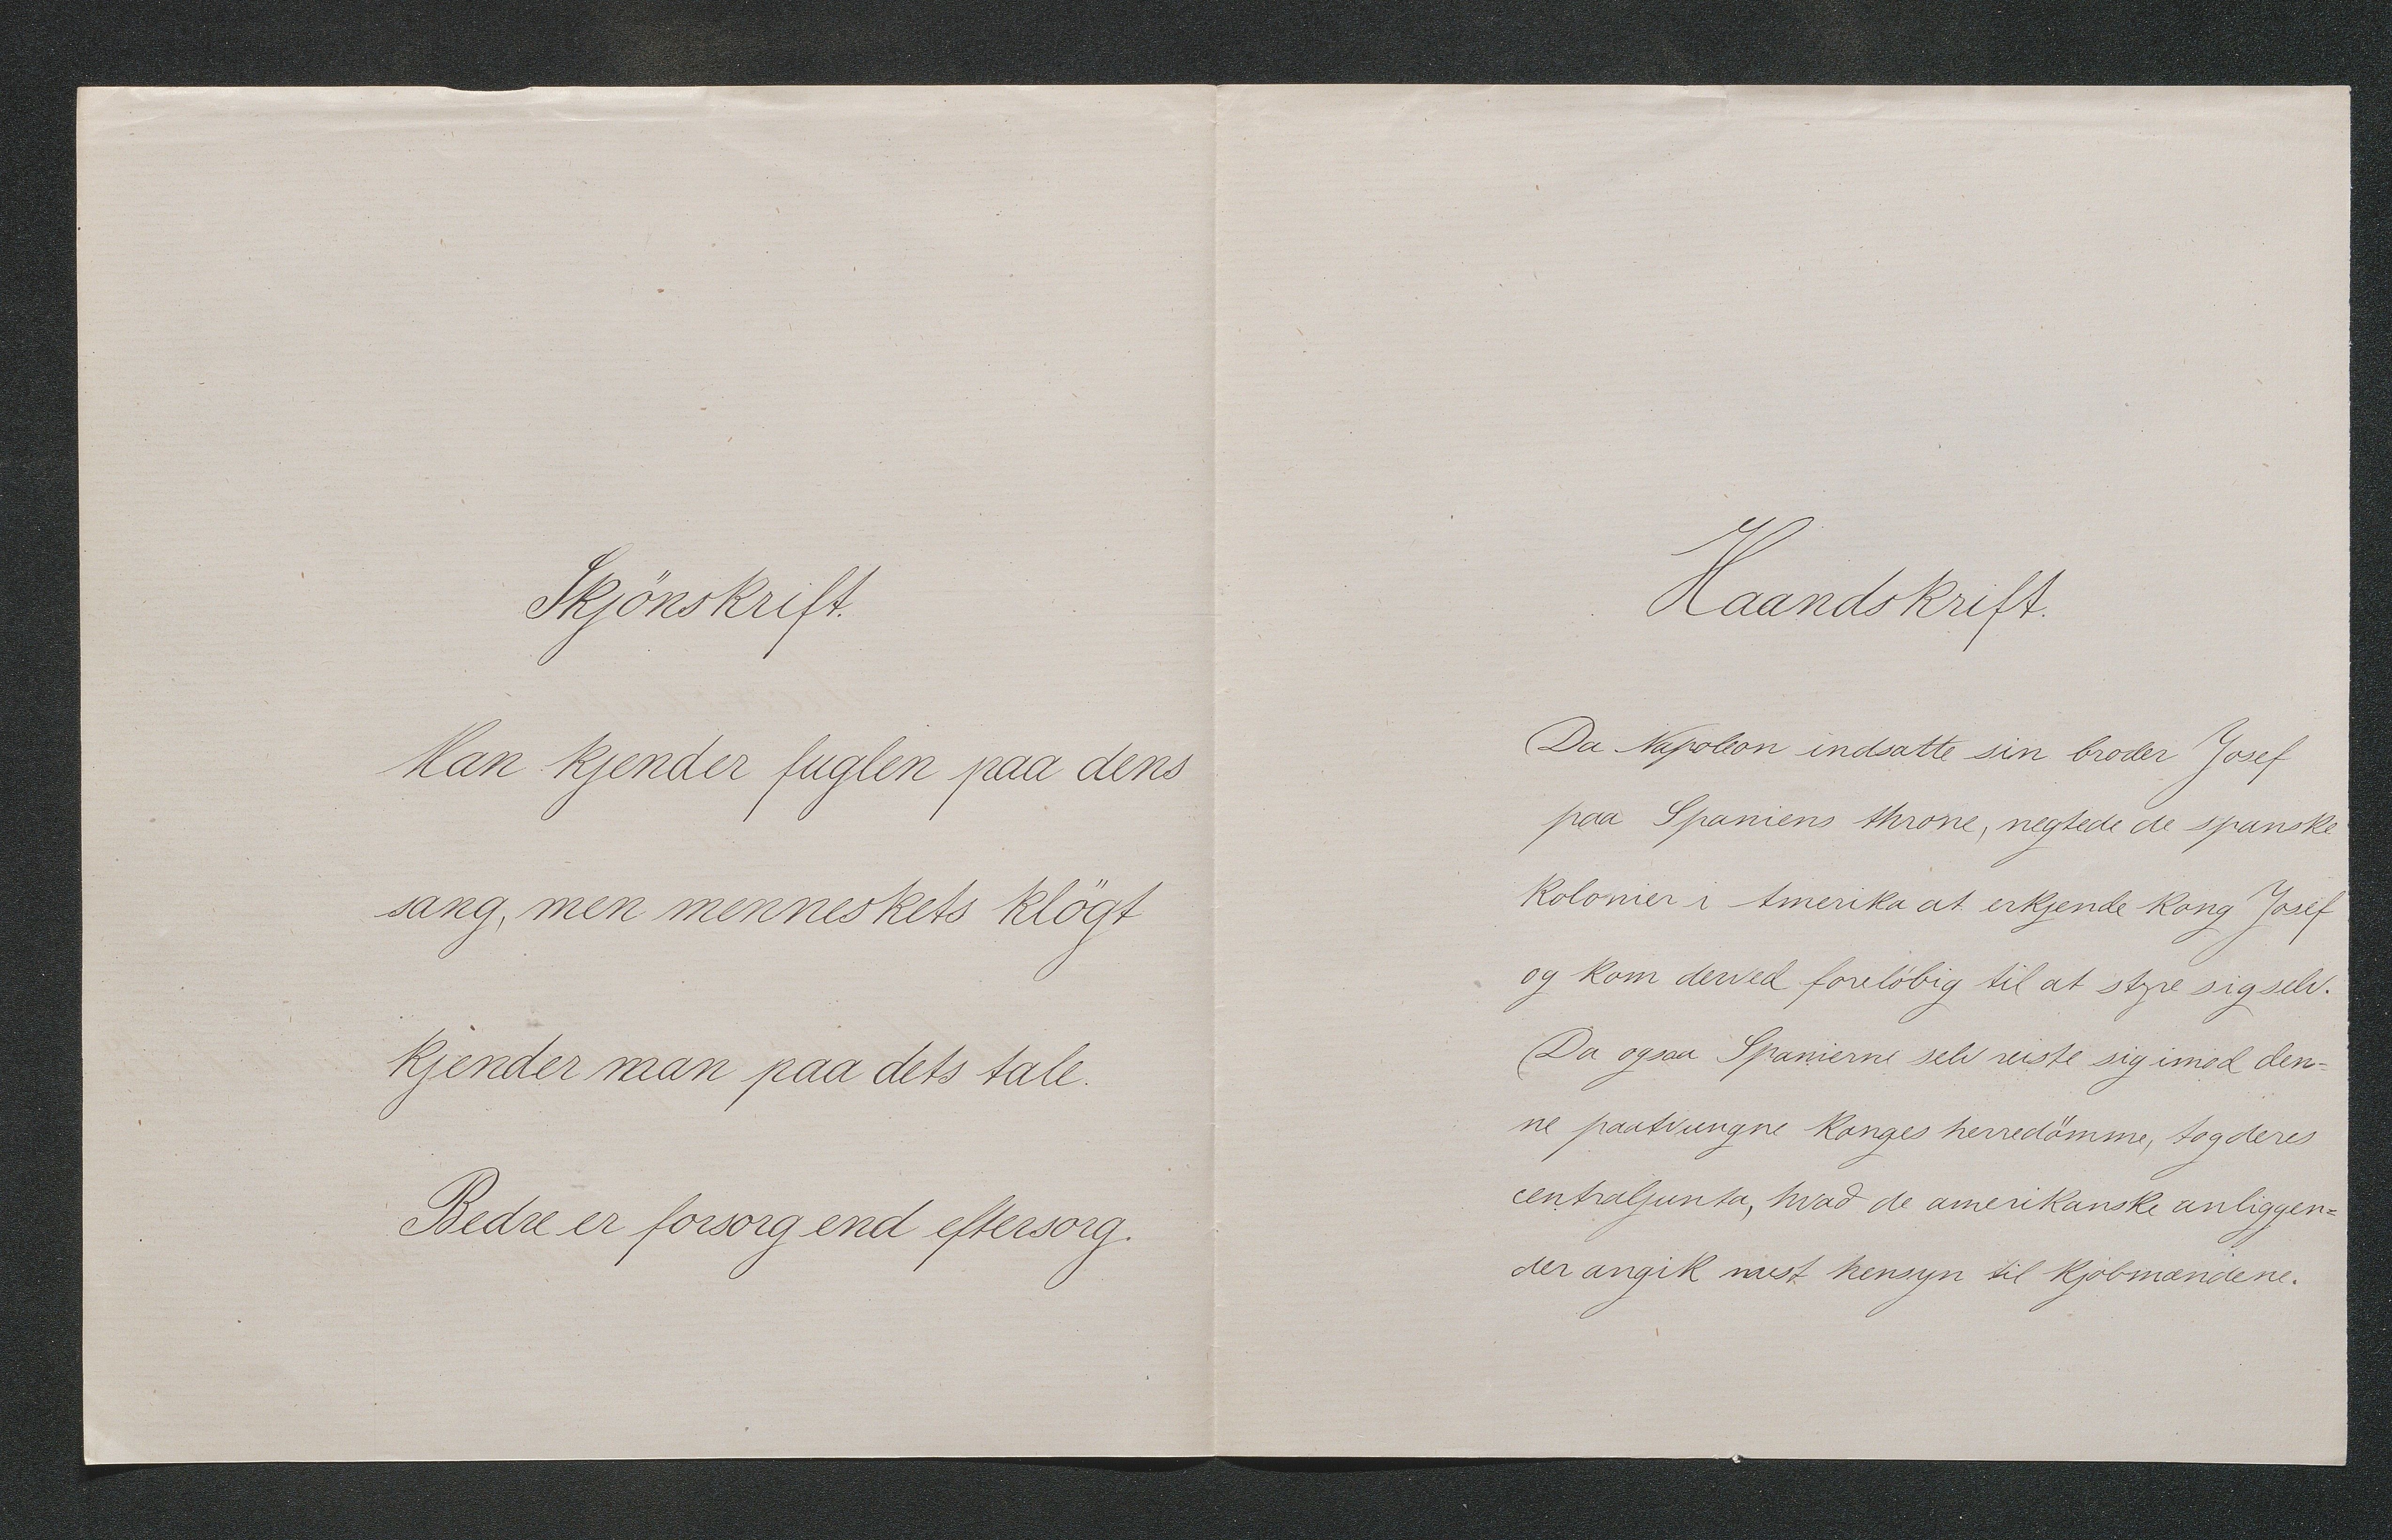 Skjönskrift.
Man kjender fuglen paa dens
sang, men menneskets klögt
kjender man paa dets tale.
Bedre er forsorg end eftersorg.
Haandskrift.
Da Napoleon indsatte sin broder Josef
paa Spaniens throne, negtede de spanske
kolonier i Amerika at erkjende kong Josef
og kom derved foreløbig til at styre sig selv.
Da ogsaa Spanierne selv reiste sig imod den=
ne paatvungne konges herredömme, tog deres
centraljunta, hvad de amerikanske anliggen=
der angik mest hensyn til kjøbmændene.